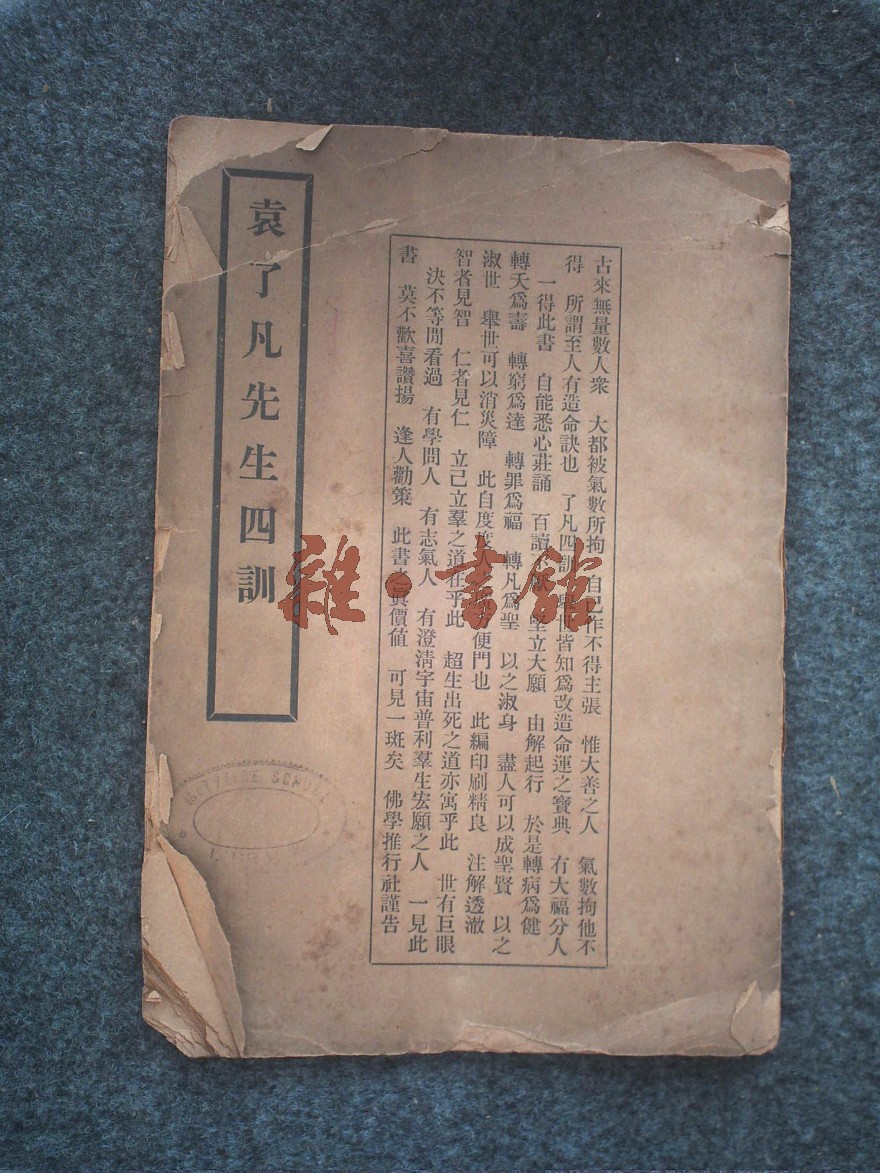 袁了凡先生四訓
古來無量數人衆　大都被氣數所拘　自己作不得主張　惟大善之人　氣數拘他不
得　所謂至人有造命訣也　了凡四訓　舉世皆知爲改造命運之寶典　有大福分人
一得此書　自能悉心莊誦　百讀　堅立大願　由解起行　於是轉病爲健
轉夭爲壽　轉窮爲達　轉罪爲福　轉凡爲聖　以之淑身　盡人可以成聖賢　以之
淑世　舉世可以消災障　此自度度人之方便門也　此編印刷精良　注解透澈
智者見智　仁者見仁　立己立羣之道在乎此　超生出死之道亦寓乎此　世有巨眼
決不等閒看過　有學問人　有志氣人　有澄淸宇宙普利羣生宏願之人　一見此
書　莫不歡喜讚揚　逢人勸策　此書之眞價値　可見一斑矣　佛學推行社謹告
雜·書館